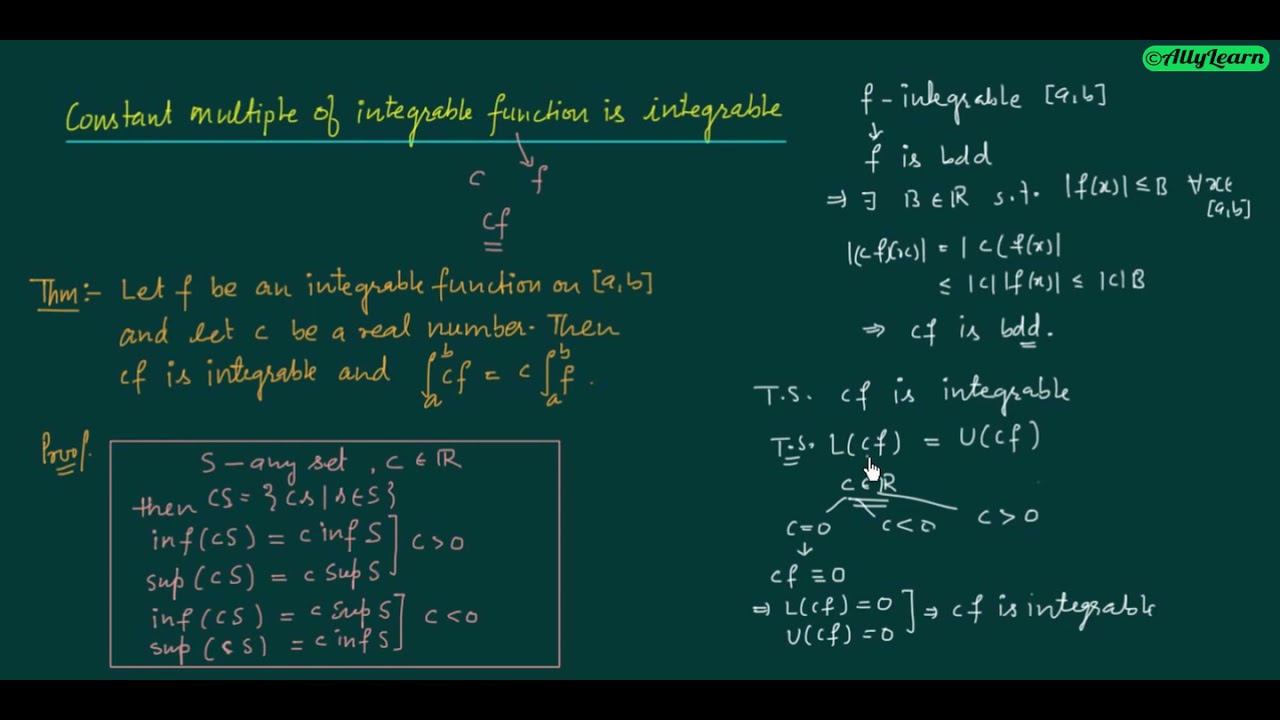 ©AllyLearn
Constant multiple of integrable function is integrable
c f
cf
Thm:- Let f be an integrable function on [a,b]
and let c be a real number. Then
cf is integrable and ∫_a^b cf = c ∫_a^b f .
Proof.
S - any set , c ∈ ℝ
then CS = {cs | s ∈ S}
inf(CS) = c inf S
sup(CS) = c sup S ] c > 0
inf(CS) = c sup S
sup(CS) = c inf S ] c < 0
f - integrable [a,b]
↓
f is bdd
⇒ ∃ B ∈ ℝ s.t. |f(x)| ≤ B ∀ x ∈ [a,b]
|(cf)(x)| = | c(f(x)|
≤ |c| |f(x)| ≤ |c| B
⇒ cf is bdd.
T.S. cf is integrable
T.S. L(cf) = U(cf)
c ∈ ℝ
c=0 c<0 c>0
↓
cf ≡ 0
⇒ L(cf) = 0
U(cf) = 0 ] ⇒ cf is integrable